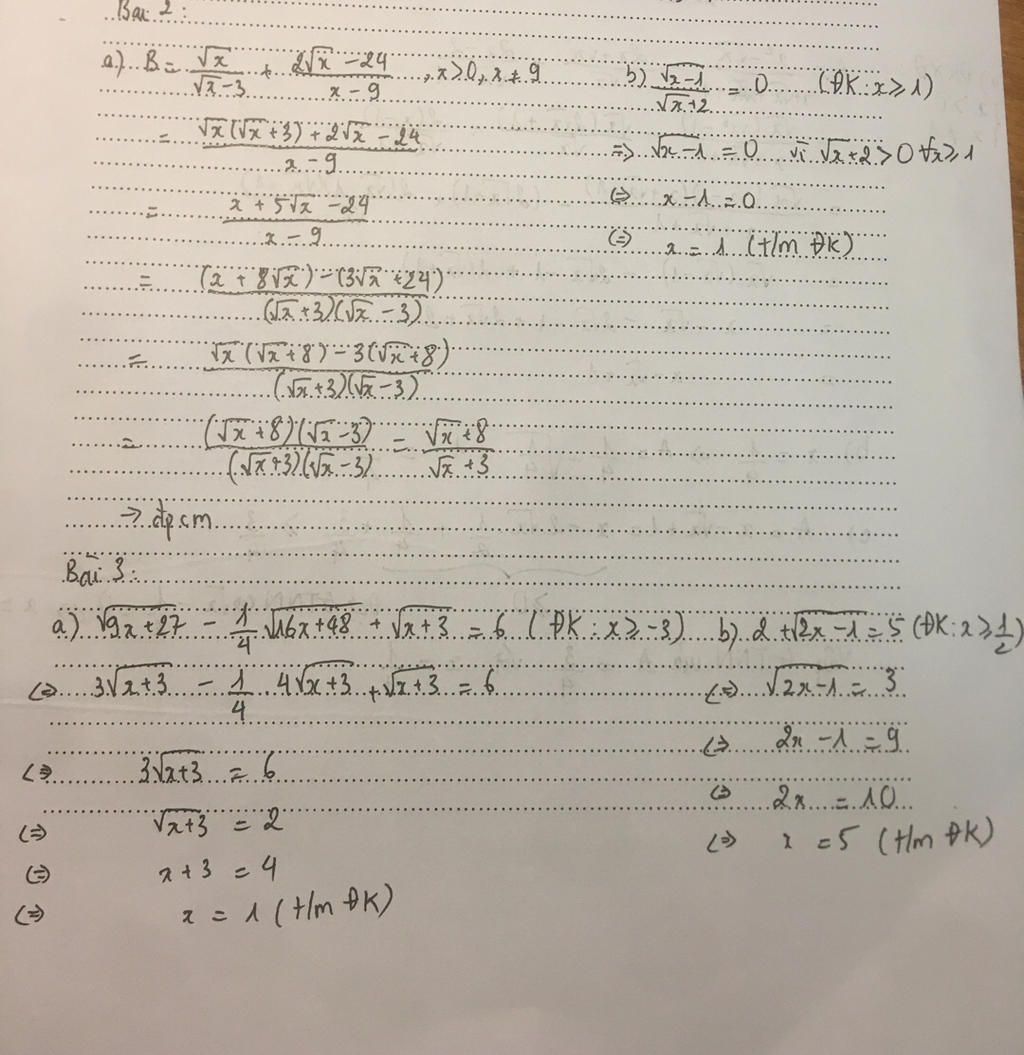 Bài 2:
a) B = √x/(√x-3) + (2√x-24)/(x-9), x>0, x≠9
= (√x(√x+3)+2√x-24)/(x-9)
= (x+5√x-24)/(x-9)
= ((x+8√x)-(3√x+24))/((√x+3)(√x-3))
= (√x(√x+8)-3(√x+8))/((√x+3)(√x-3))
= ((√x+8)(√x-3))/((√x+3)(√x-3)) = (√x+8)/(√x+3)
→ đpcm
b) √(x-1)/(√x+2) = 0 (ĐK: x≥1)
=> √(x-1) = 0 vì √x+2>0 ∀x≥1
<=> x-1=0
<=> x=1 (t/m ĐK)
Bài 3:
a) √(9x+27) - 1/4 √(16x+48) + √(x+3) = 6 (ĐK: x≥-3)
<=> 3√(x+3) - 1/4 . 4√(x+3) + √(x+3) = 6
<=> 3√(x+3) = 6
<=> √(x+3) = 2
<=> x+3 = 4
<=> x = 1 (t/m ĐK)
b) 2+√(2x-1)=5 (ĐK: x≥1/2)
<=> √(2x-1) = 3
<=> 2x-1 = 9
<=> 2x = 10
<=> x = 5 (t/m ĐK)